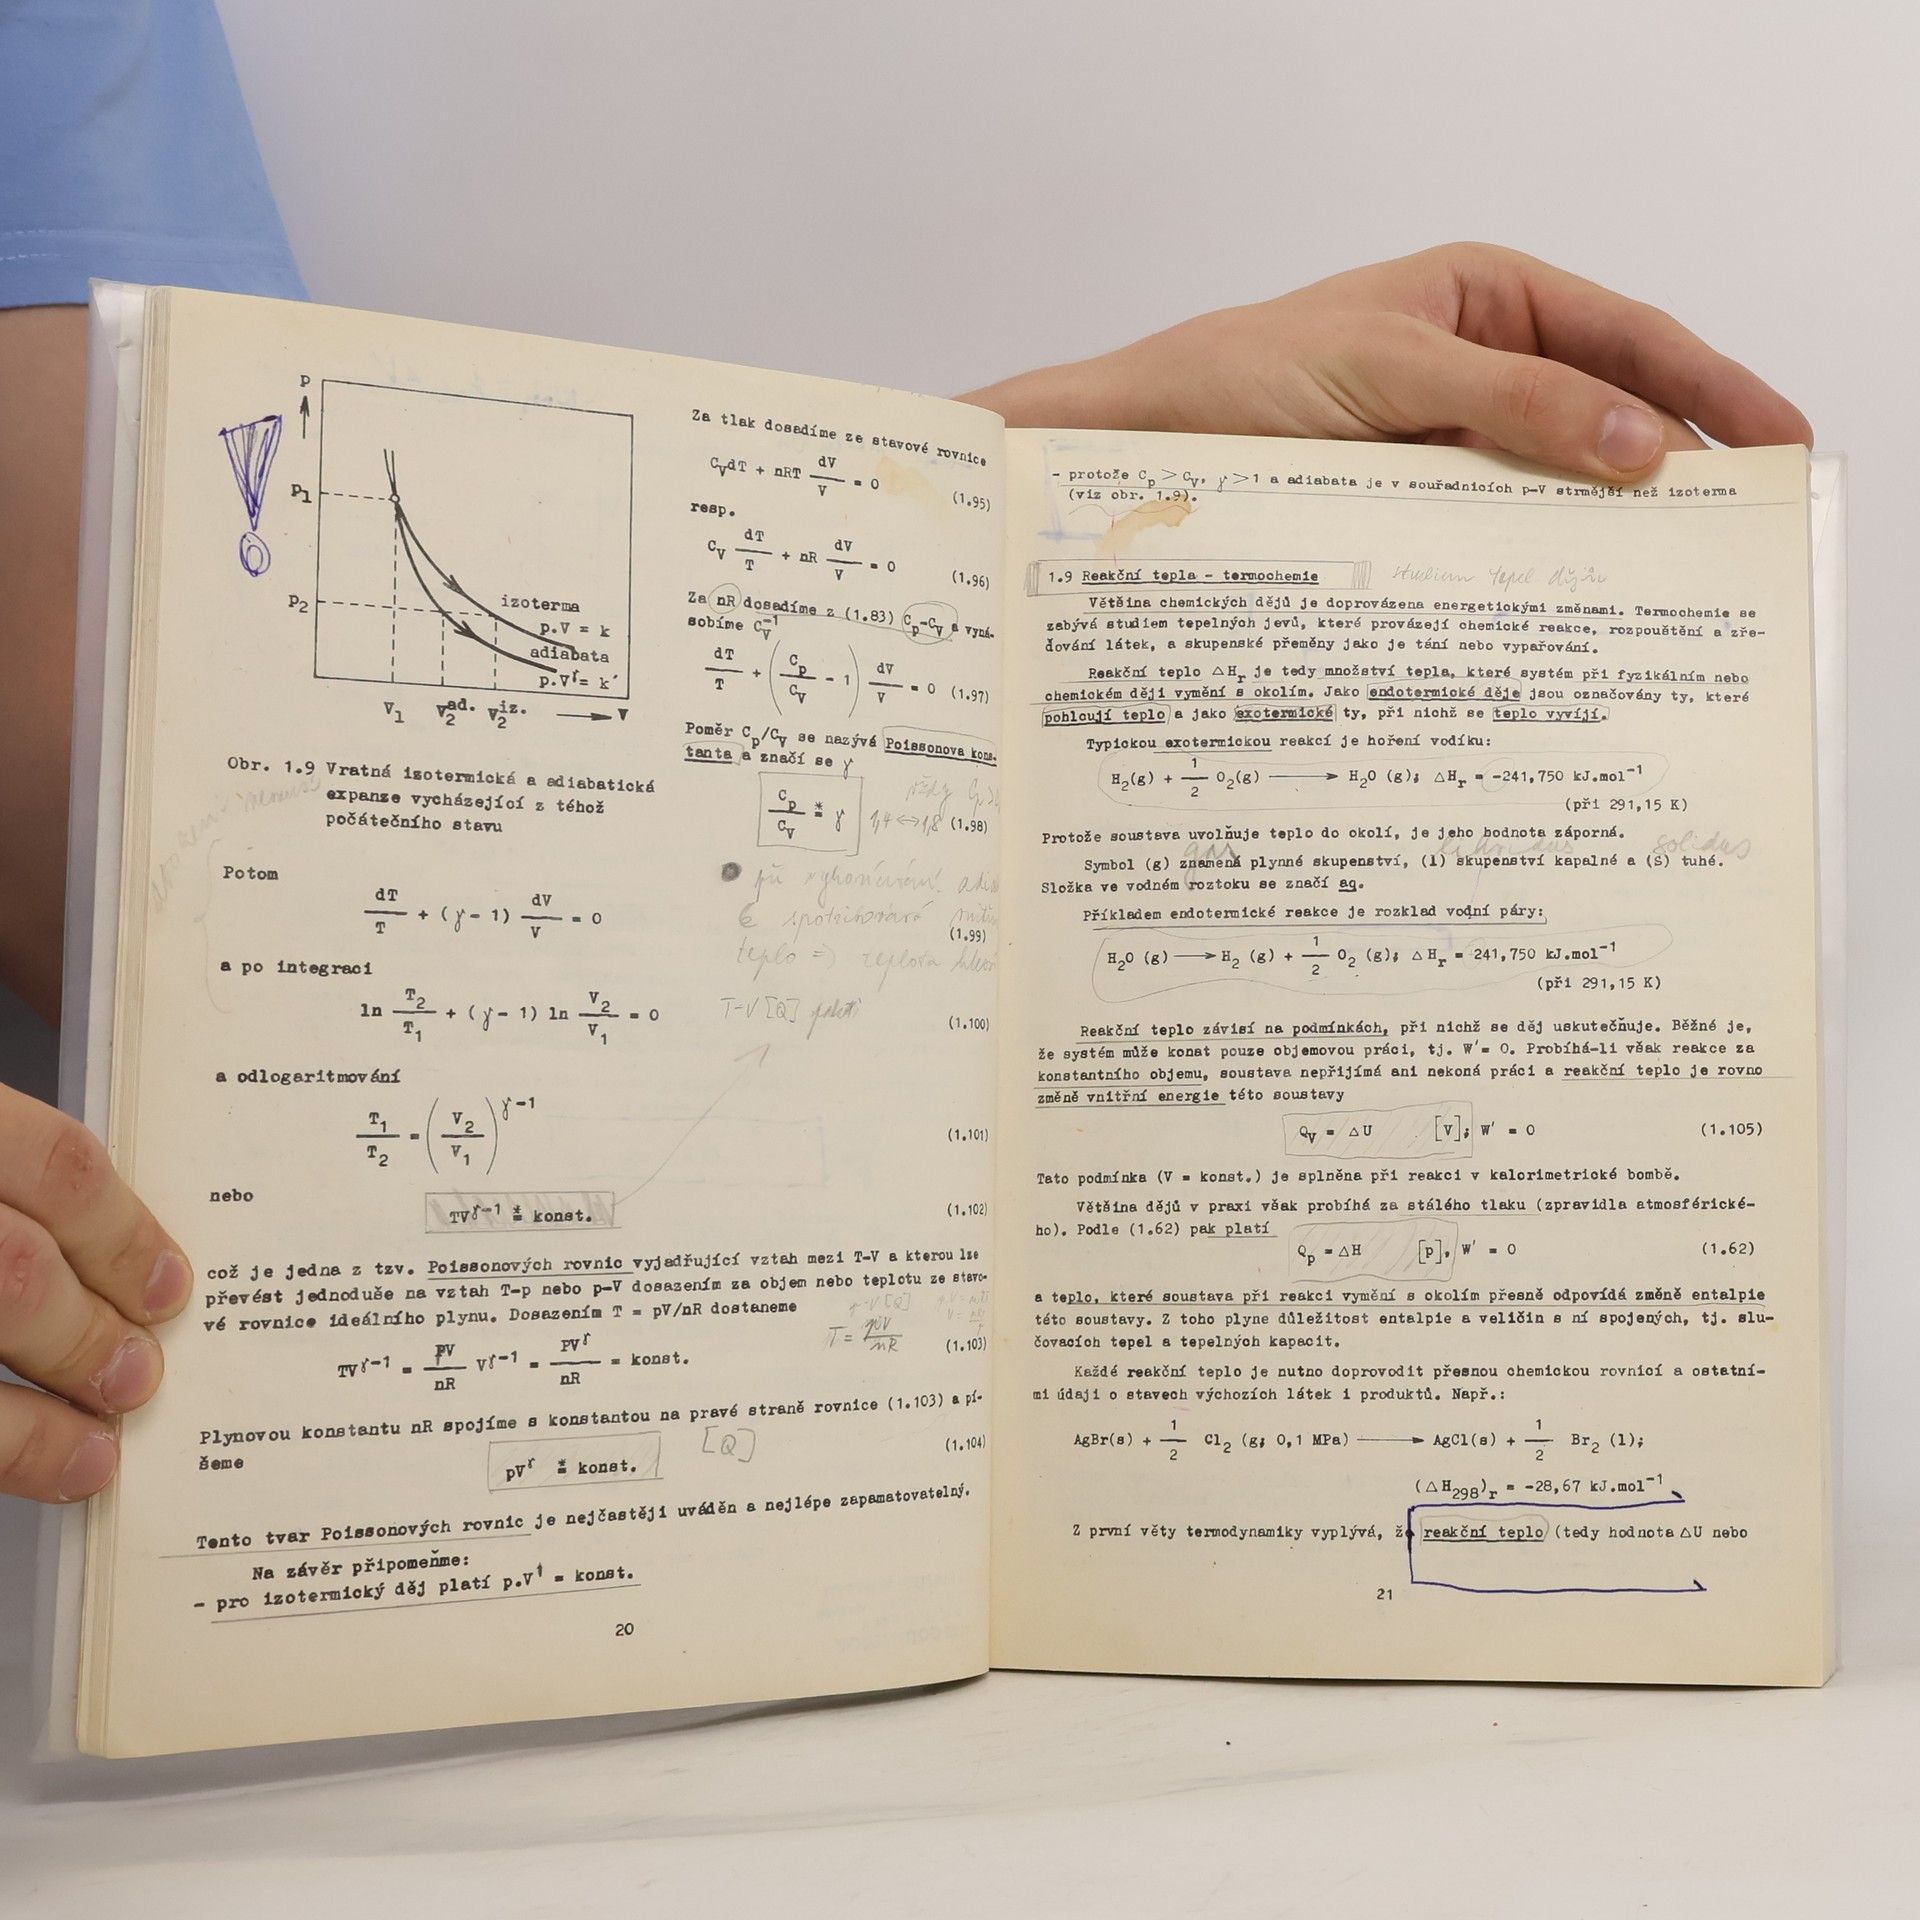 p
p1
p2
izoterma
p.V = k
adiabata
p.Vᵞ = k´
V1 V2ad. V2iz. V
Obr. 1.9 Vratná izotermická a adiabatická
expanze vycházející z téhož
počátečního stavu
Za tlak dosadíme ze stavové rovnice
CVdT + nRT dV/V = 0 (1.95)
resp.
CV dT/T + nR dV/V = 0 (1.96)
Za nR dosadíme z (1.83) Cp-CV a vyná-
sobíme CV⁻¹
dT/T + (Cp/CV - 1) dV/V = 0 (1.97)
Poměr Cp/CV se nazývá Poissonova kons-
tanta a značí se γ
Cp/CV ≛ γ (1.98)
1,4 <-> 1,8
Potom
dT/T + (γ - 1) dV/V = 0 (1.99)
teplo => teplota
a po integraci
ln T2/T1 + (γ - 1) ln V2/V1 = 0 (1.100)
T-V [Q] platí
a odlogaritmování
T1/T2 = (V2/V1)ᵞ⁻¹ (1.101)
nebo
TVᵞ⁻¹ ≛ konst. (1.102)
což je jedna z tzv. Poissonových rovnic vyjadřující vztah mezi T-V a kterou lze
převést jednoduše na vztah T-p nebo p-V dosazením za objem nebo teplotu ze stavo-
vé rovnice ideálního plynu. Dosazením T = pV/nR dostaneme
p-V [Q]
T = pV/nR
TVᵞ⁻¹ = pV/nR Vᵞ⁻¹ = pVᵞ/nR = konst. (1.103)
Plynovou konstantu nR spojíme s konstantou na pravé straně rovnice (1.103) a pí-
šeme
pVᵞ ≛ konst. [Q] (1.104)
Tento tvar Poissonových rovnic je nejčastěji uváděn a nejlépe zapamatovatelný.
Na závěr připomeňme:
- pro izotermický děj platí p.V¹ = konst.
20
- protože Cp > CV, γ > 1 a adiabata je v souřadnicích p-V strmější než izoterma
(viz obr. 1.9).
1.9 Reakční tepla - termochemie studium tepel dějů
Většina chemických dějů je doprovázena energetickými změnami. Termochemie se
zabývá studiem tepelných jevů, které provázejí chemické reakce, rozpouštění a zře-
ďování látek, a skupenské přeměny jako je tání nebo vypařování.
Reakční teplo ΔHr je tedy množství tepla, které systém při fyzikálním nebo
chemickém ději vymění s okolím. Jako endotermické děje jsou označovány ty, které
pohlcují teplo a jako exotermické ty, při nichž se teplo vyvíjí.
Typickou exotermickou reakcí je hoření vodíku:
H2(g) + 1/2 O2(g) ⟶ H2O (g); ΔHr = -241,750 kJ.mol⁻¹
(při 291,15 K)
Protože soustava uvolňuje teplo do okolí, je jeho hodnota záporná.
gas solidus
Symbol (g) znamená plynné skupenství, (l) skupenství kapalné a (s) tuhé.
Složka ve vodném roztoku se značí aq.
Příkladem endotermické reakce je rozklad vodní páry:
H2O (g) ⟶ H2 (g) + 1/2 O2 (g); ΔHr = 241,750 kJ.mol⁻¹
(při 291,15 K)
Reakční teplo závisí na podmínkách, při nichž se děj uskutečňuje. Běžné je,
že systém může konat pouze objemovou práci, tj. W´= 0. Probíhá-li však reakce za
konstantního objemu, soustava nepřijímá ani nekoná práci a reakční teplo je rovno
změně vnitřní energie této soustavy
QV = ΔU [V]; W´ = 0 (1.105)
Tato podmínka (V = konst.) je splněna při reakci v kalorimetrické bombě.
Většina dějů v praxi však probíhá za stálého tlaku (zpravidla atmosférické-
ho). Podle (1.62) pak platí
Qp = ΔH [p], W´ = 0 (1.62)
a teplo, které soustava při reakci vymění s okolím přesně odpovídá změně entalpie
této soustavy. Z toho plyne důležitost entalpie a veličin s ní spojených, tj. slu-
čovacích tepel a tepelných kapacit.
Každé reakční teplo je nutno doprovodit přesnou chemickou rovnicí a ostatní-
mi údaji o stavech výchozích látek i produktů. Např.:
AgBr(s) + 1/2 Cl2 (g; 0,1 MPa) ⟶ AgCl(s) + 1/2 Br2 (l);
(ΔH298)r = -28,67 kJ.mol⁻¹
Z první věty termodynamiky vyplývá, že reakční teplo (tedy hodnota ΔU nebo
21